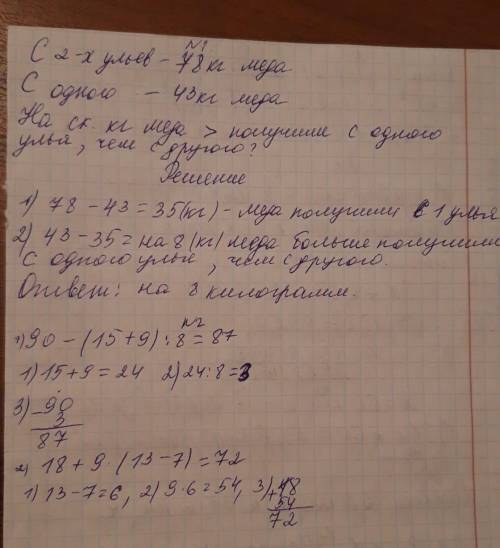 №1
С 2-х ульев - 78 кг меда
С одного - 43 кг меда
На ск. кг меда > получили с одного
улья, чем с другого?
Решение
1) 78 - 43 = 35 (кг) - меда получили с 1 улья
2) 43 - 35 = на 8 (кг) медда больше получили
с одного улья, чем с другого.
Ответ: на 8 килограмм.
№2
1) 90 - (15 + 9) : 8 = 87
1) 15 + 9 = 24 2) 24 : 8 = 3
3) - 90
3
87
2) 18 + 9 · (13 - 7) = 72
1) 13 - 7 = 6, 2) 9 · 6 = 54, 3) + 18
54
72